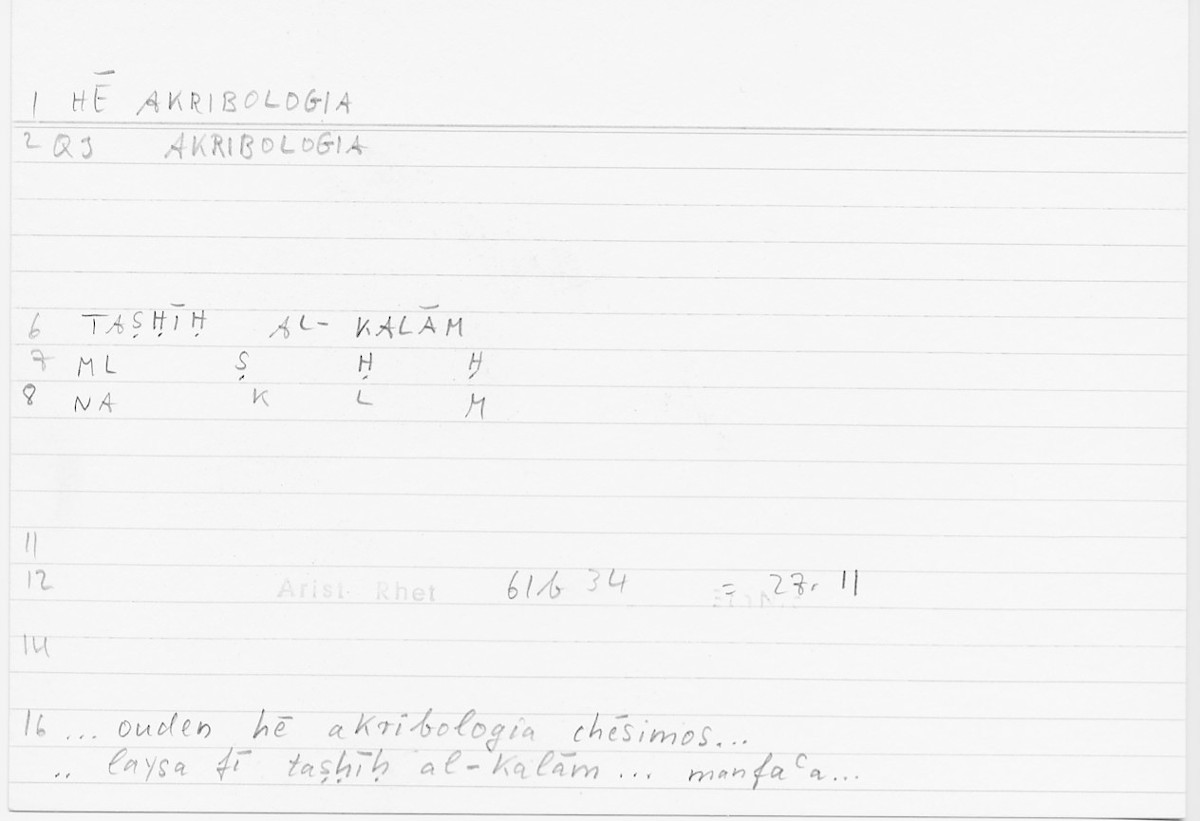 1 HĒ AKRIBOLOGIA
2 QJ AKRIBOLOGIA
6 TAṢḤĪḤ AL- KALĀM
7 ML Ṣ Ḥ Ḥ
8 NA K L M
11
12 Arist. Rhet 61b 34 = 27, 11
14
16 ... ouden hē akribologia chēsimos...
.. laysa fī taṣḥīḥ al-kalām ... manfaʿa...